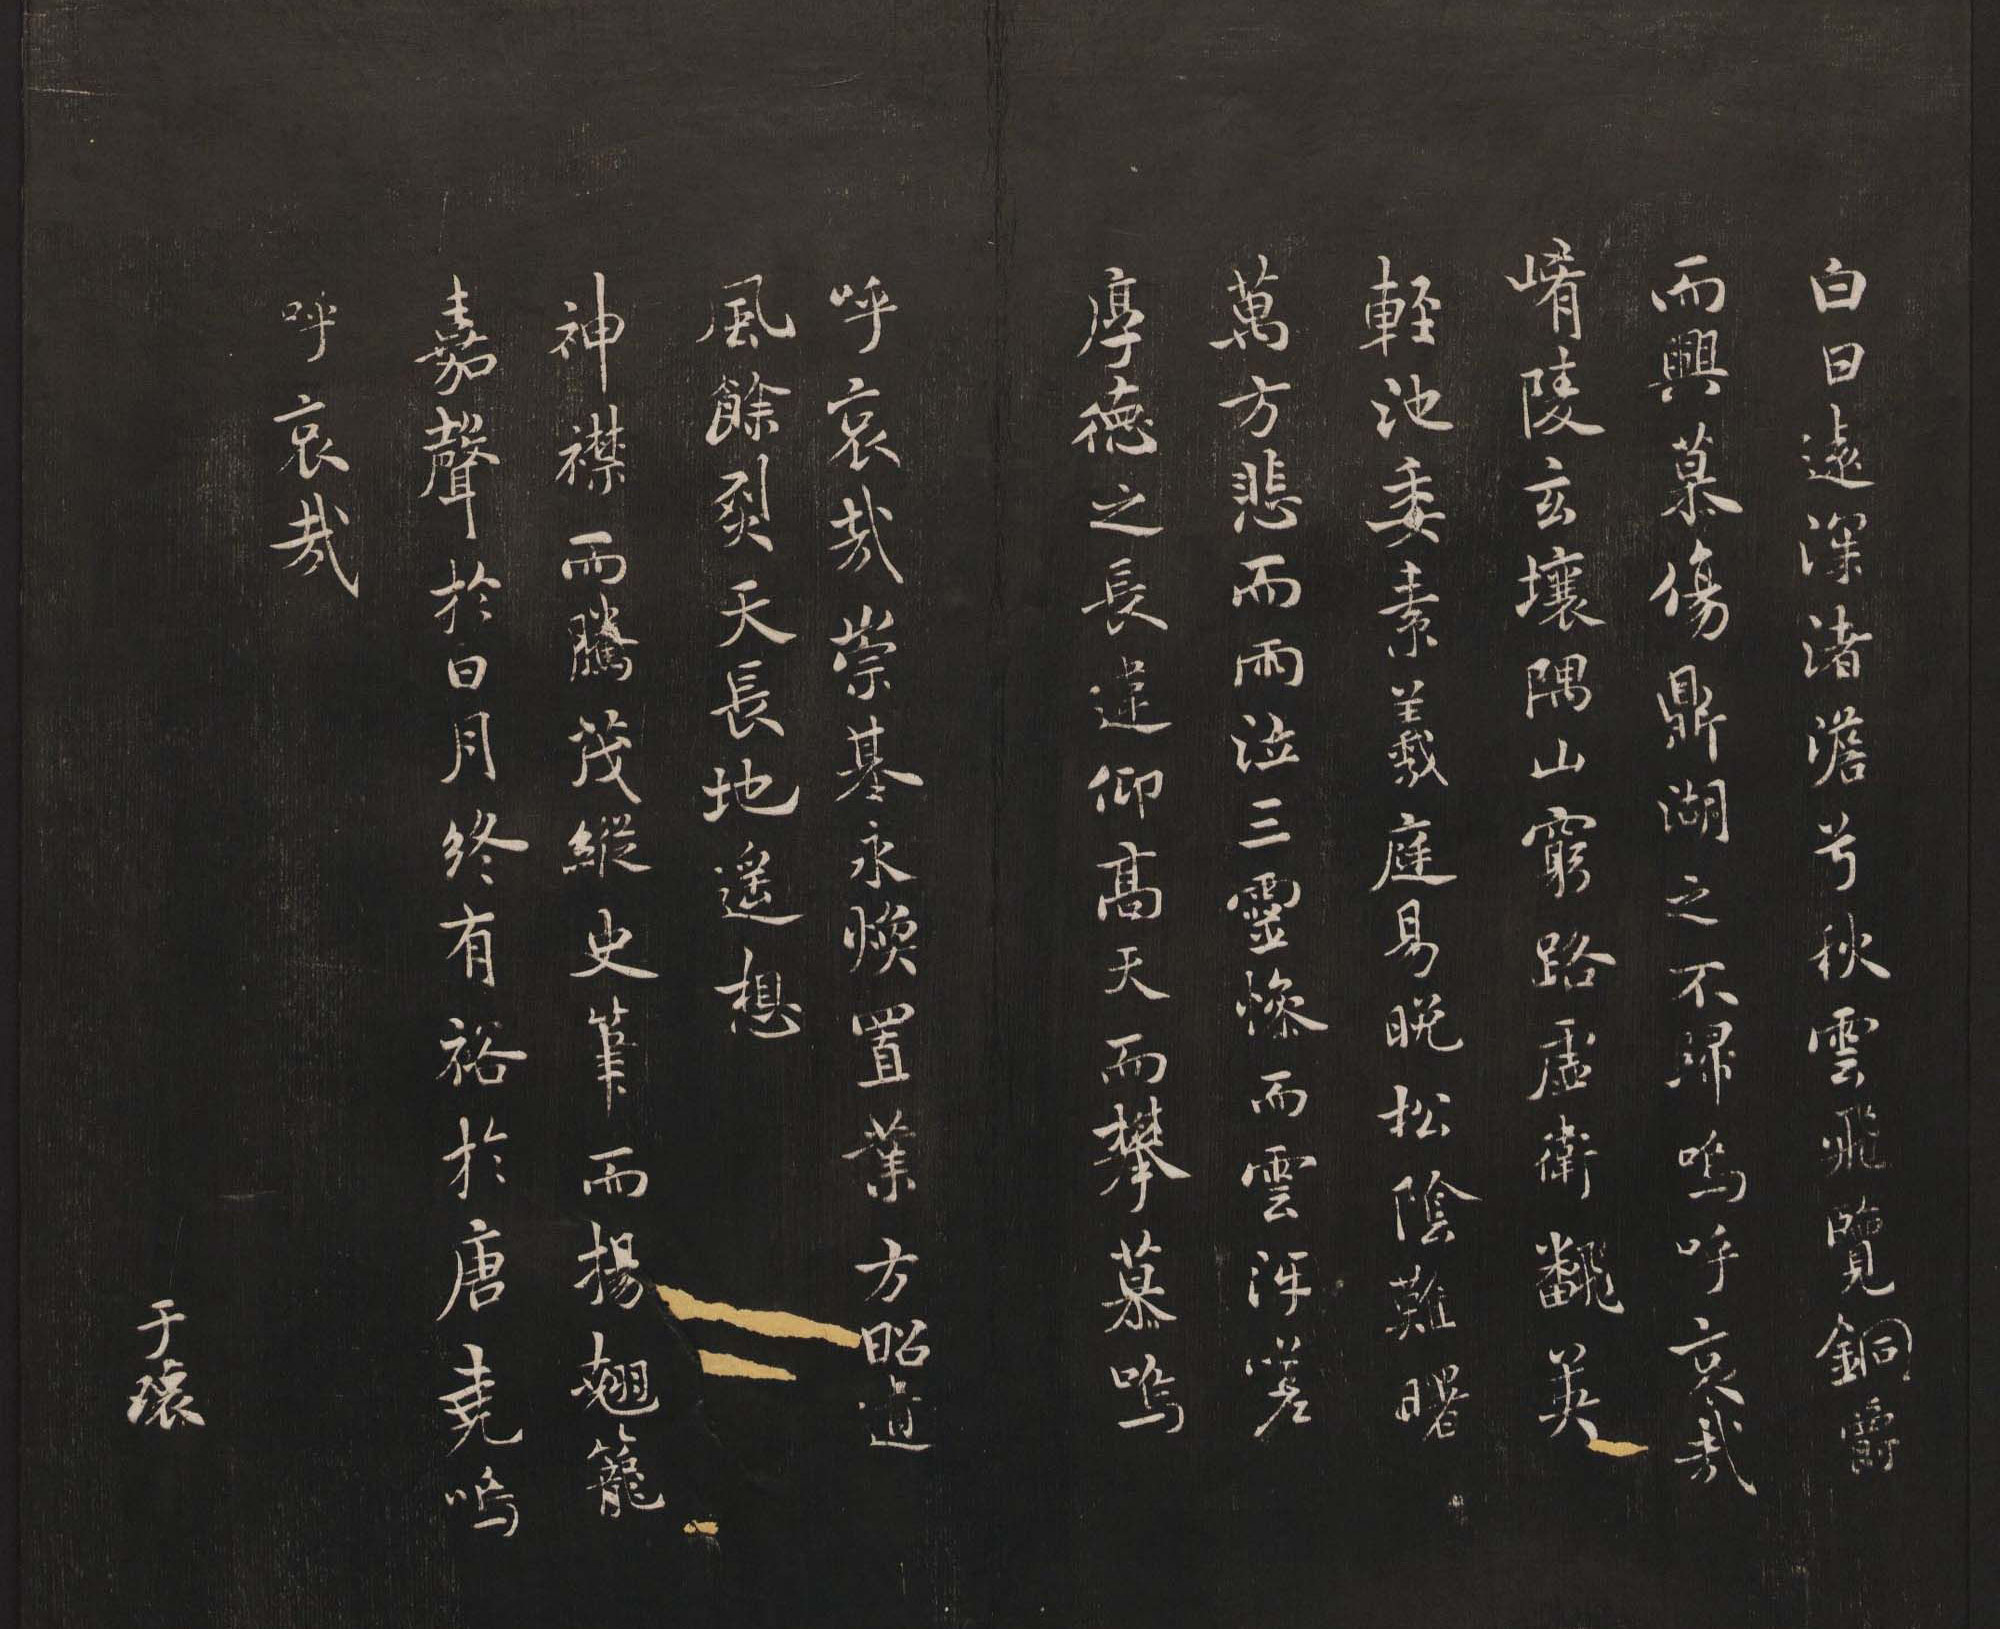 白日遠深渚澹兮秋雲飛覽銅爵
而興慕傷鼎湖之不歸嗚呼哀哉
崤陵玄壤隅山窮路虛衛飜英
輊池委素羲庭易晩松陰難曙
萬方悲而雨泣三靈慘而雲沍嗟
厚德之長違仰高天而攀慕嗚
呼哀哉崇基永煥置業方昭道
風餘烈天長地遥想
神襟而騰茂縱史筆而揚翹籠
嘉聲於日月終有裕於唐堯嗚
呼哀哉
于瓌